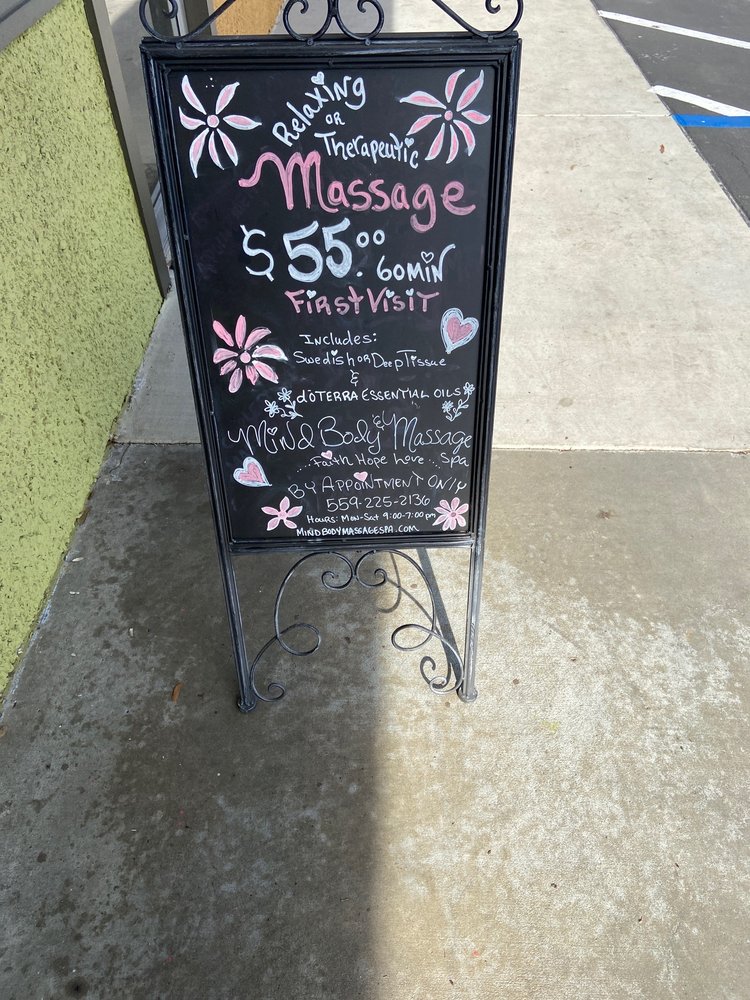 Relaxing
or
Therapeutic
Massage
$55.00 60min
First Visit
Includes:
Swedish or Deep Tissue
&
dōTERRA ESSENTIAL OILS
Mind Body & Massage
...Faith Hope Love... Spa
By Appointment Only
559-225-2136
Hours: Mon-Sat 9:00-7:00pm
MINDBODYMASSAGESPA.COM